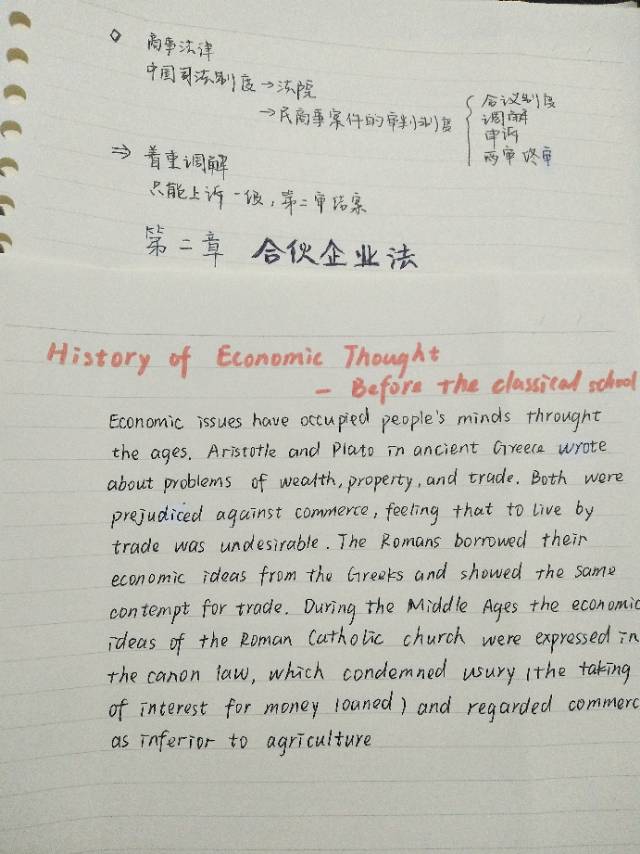 商事法律
中国司法制度→法院
→民商事案件的审判制度 { 合议制度
调解
申诉
两审终审
⇒ 着重调解
只能上诉一级，第二审结案
第二章 合伙企业法
History of Economic Thought
- Before the classical school
Economic issues have occupied people's minds throught
the ages. Aristotle and Plato in ancient Greece wrote
about problems of wealth, property, and trade. Both were
prejudiced against commerce, feeling that to live by
trade was undesirable. The Romans borrowed their
economic ideas from the Greeks and showed the same
contempt for trade. During the Middle Ages the economic
ideas of the Roman Catholic church were expressed in
the canon law, which condemned usury (the taking
of interest for money loaned) and regarded commerc
as inferior to agriculture